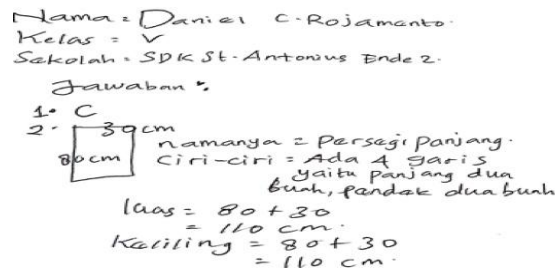 Nama = Daniel C. Rojamanto.
Kelas = V
Sekolah = SDK St. Antonius Ende 2.
Jawaban :
1. C
2. 30 cm
80 cm
namanya = Persegi panjang.
Ciri-ciri = Ada 4 garis
yaitu panjang dua
buah, pendek dua buah
luas = 80 + 30
= 110 cm.
Keliling = 80 + 30
= 110 cm.